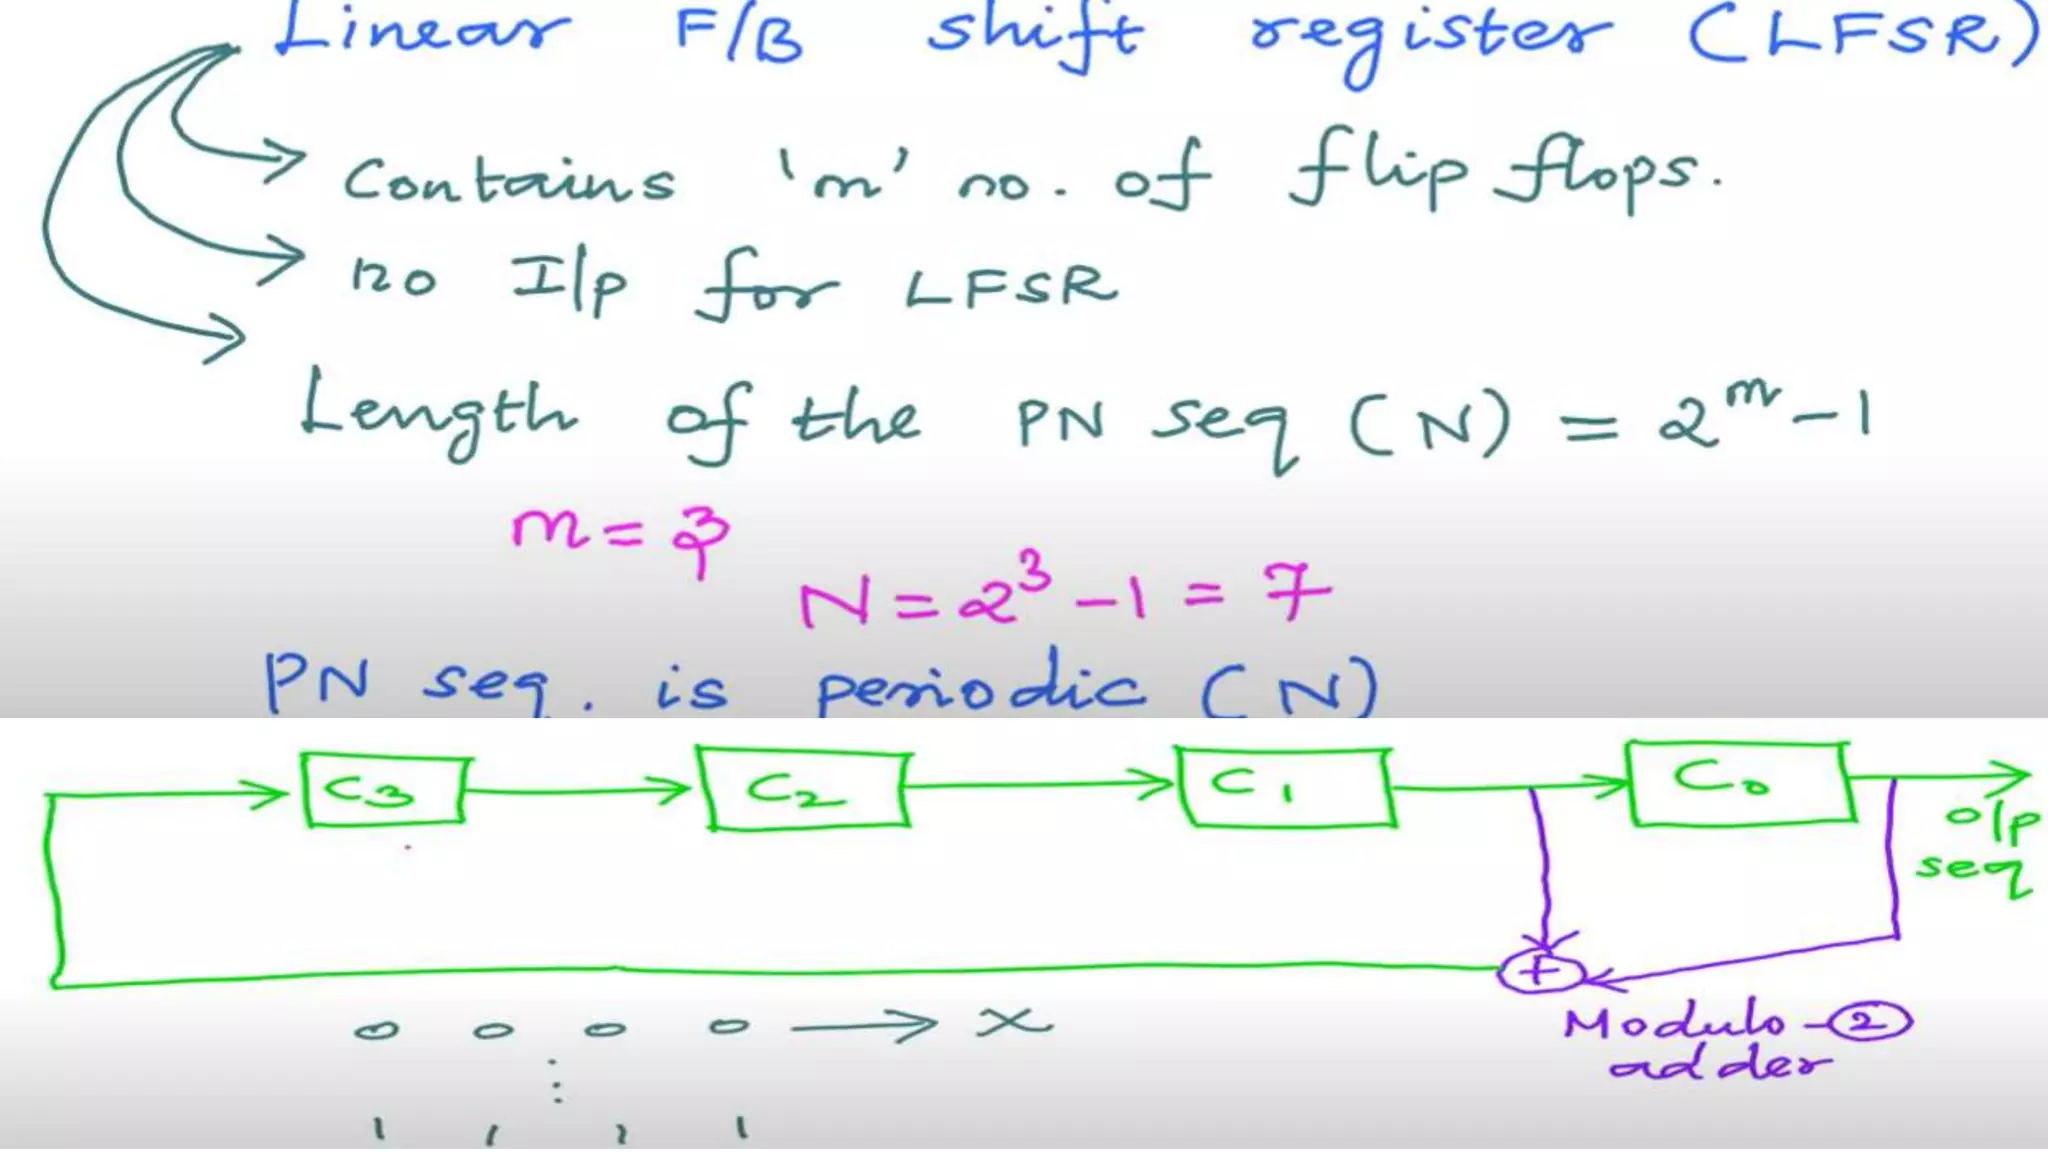 Linear F/B shift register (LFSR)
Contains 'm' no. of flip flops.
no I/p for LFSR
Length of the PN seq (N) = 2^m - 1
m = 3
N = 2^3 - 1 = 7
PN seq. is periodic (N)
C3 C2 C1 C0
o/p
seq
+
0 0 0 0 → X
Modulo-2
adder
⋮
1 1 1 1